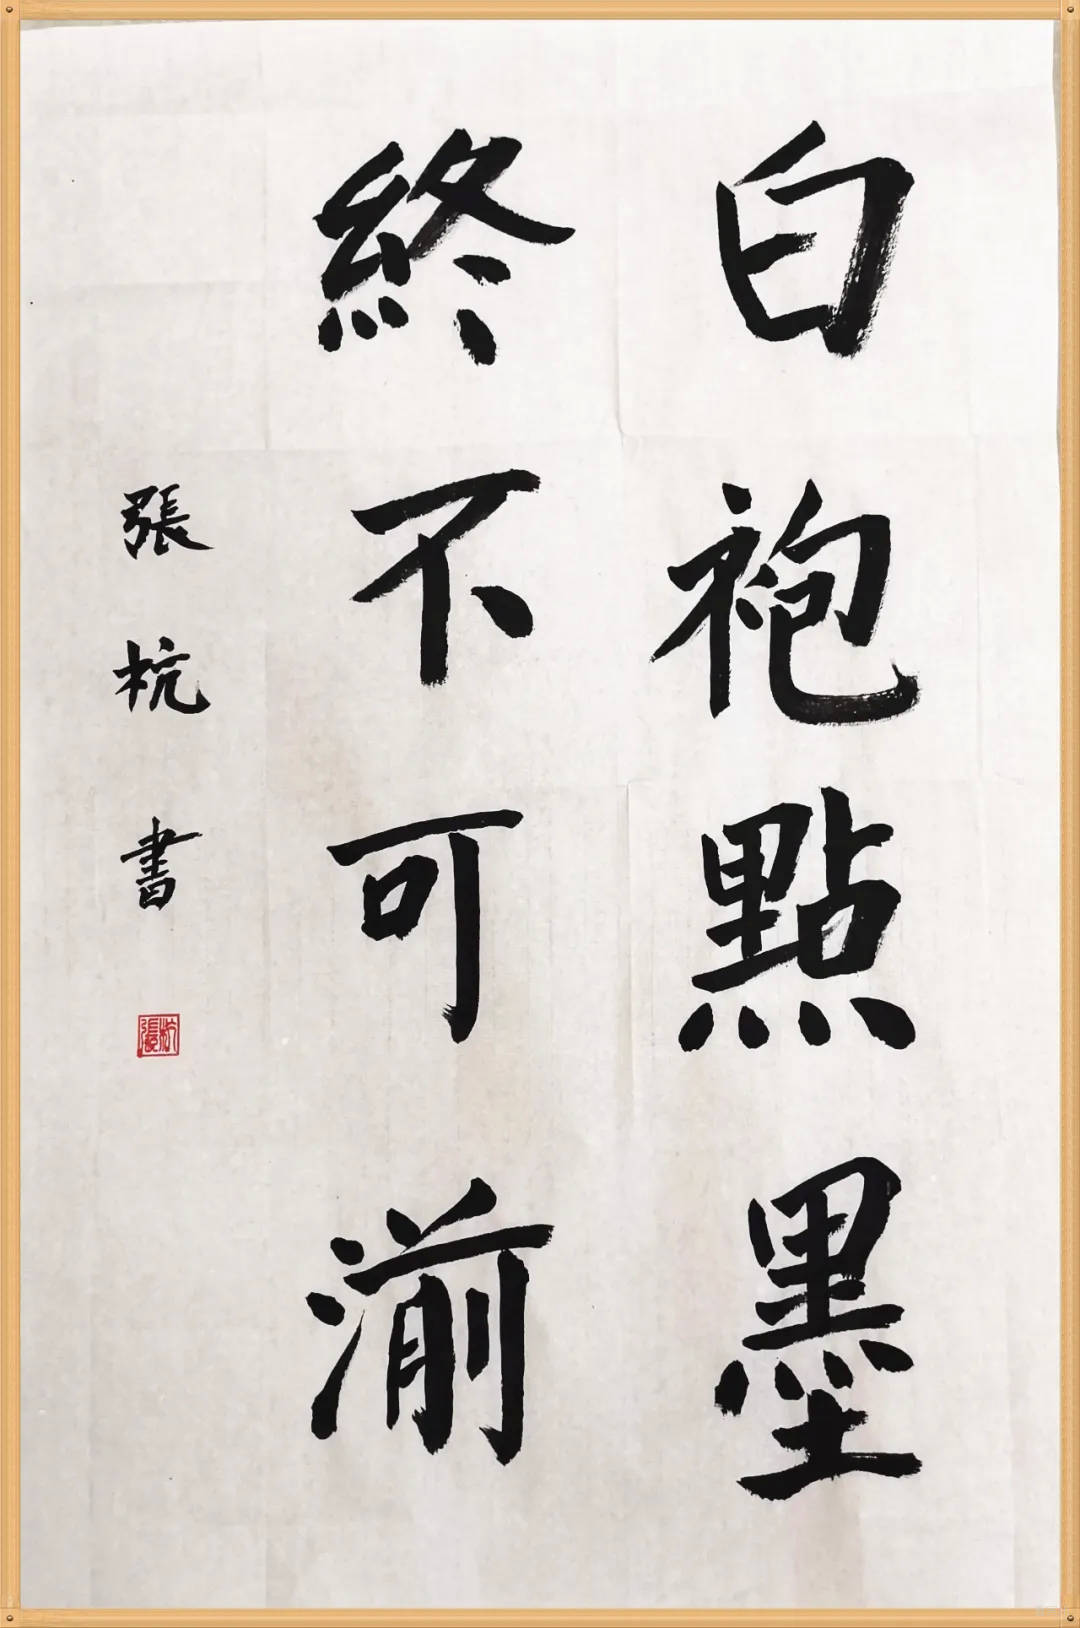 白袍點墨
終不可湔
張杭書
張杭